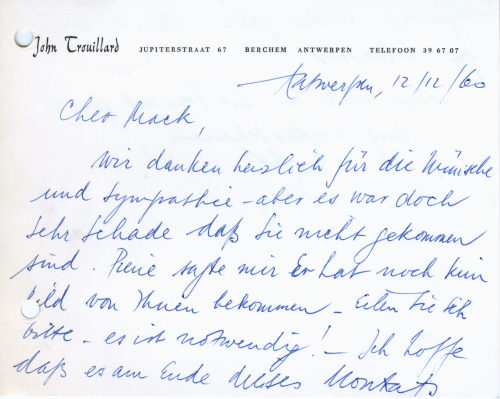 John Trouillard JUPITERSTRAAT 67 BERCHEM ANTWERPEN TELEFOON 39 67 07
Antwerpen, 12/12/60
Cher Mack,
Wir danken herzlich für die Wünsche
und Sympathie - aber es war doch
sehr schade daß Sie nicht gekommen
sind. sagte mir Er hat noch kein
Bild von Ihnen bekommen - Eilen Sie sich
bitte - es ist notwendig! - Ich hoffe
daß es am Ende dieses Monats